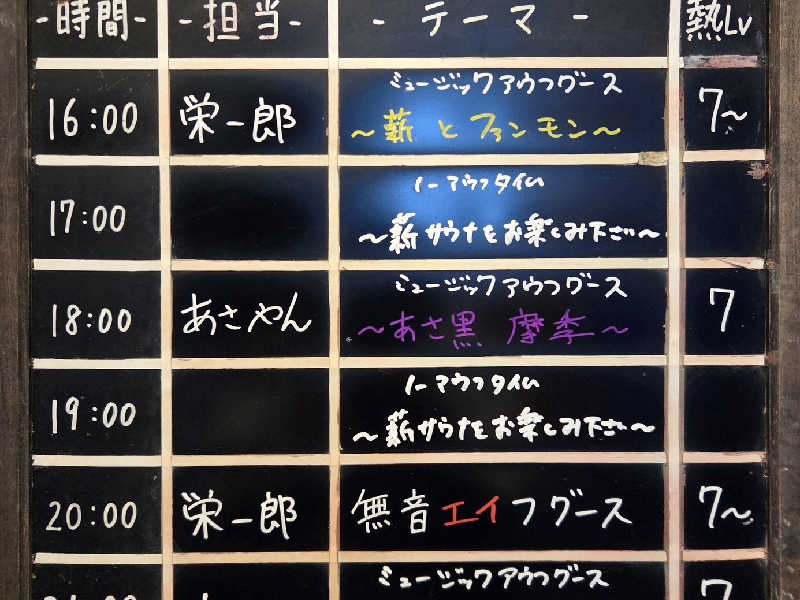 -時間- -担当- - テーマ - 熱Lv
ミュージックアウフグース
16:00 栄一郎 〜薪 と ファンモン〜 7〜
ノーアウフタイム
17:00 〜薪サウナをお楽しみ下さい〜
ミュージックアウフグース
18:00 あさやん 〜あさ黒 摩季〜 7
ノーアウフタイム
19:00 〜薪サウナをお楽しみ下さい〜
20:00 栄一郎 無音エイフグース 7〜
ミュージックアウフグース